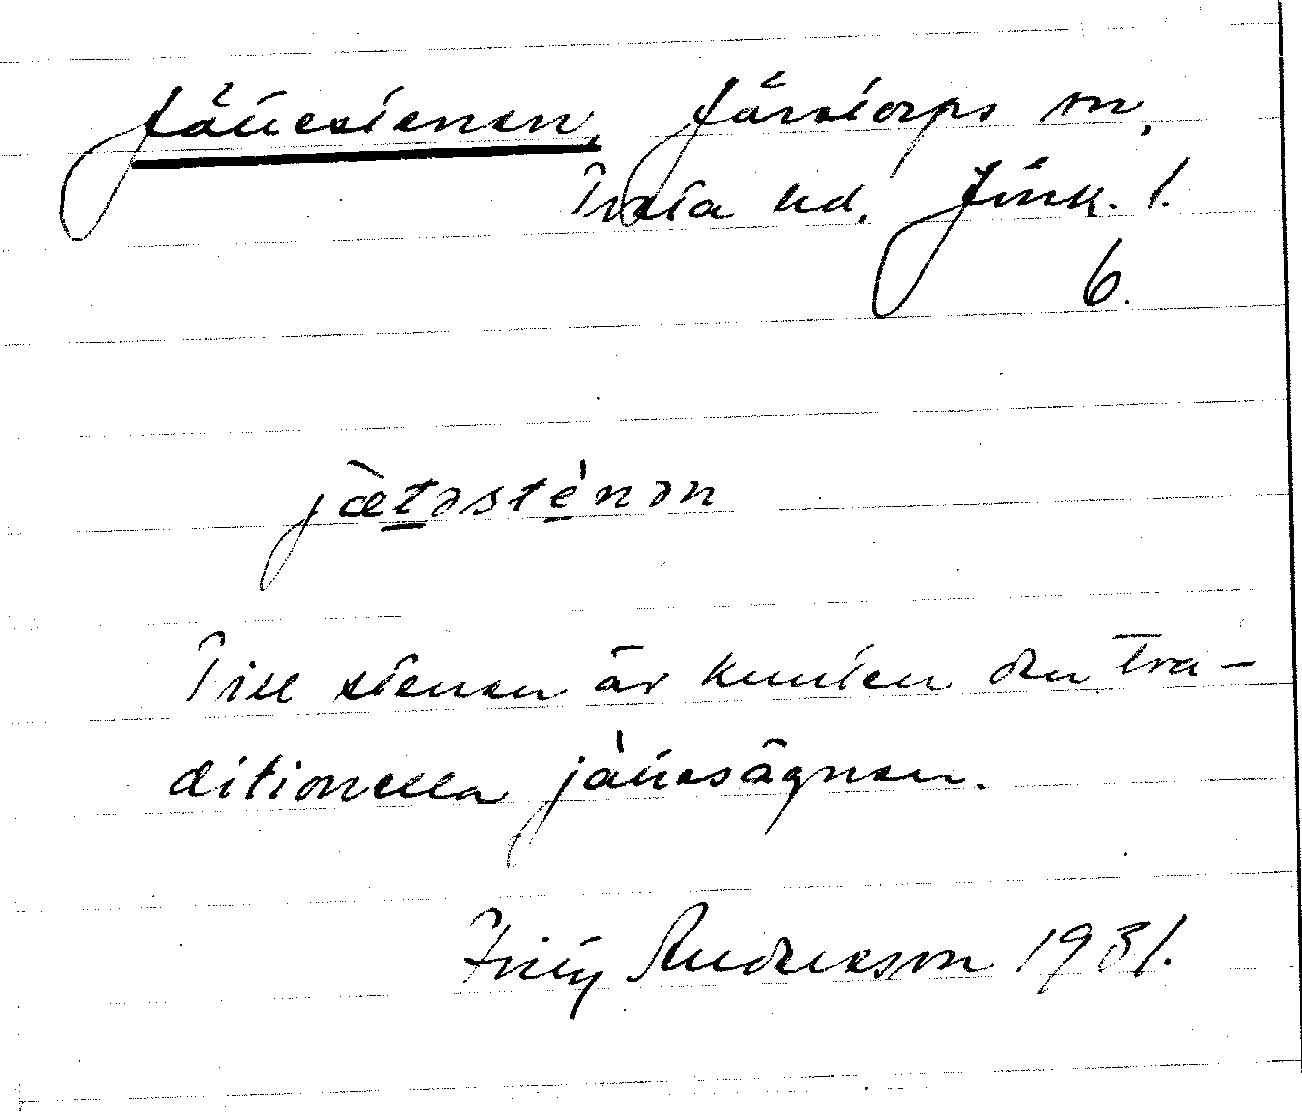 Jättestenen, Järstorps sn,
Tveta hd. Jönk. l.
6.
jæ̀təsténən
Till stenen är knuten den tra-
ditionella jättesägnen.
Fritz Andreasson 1931.